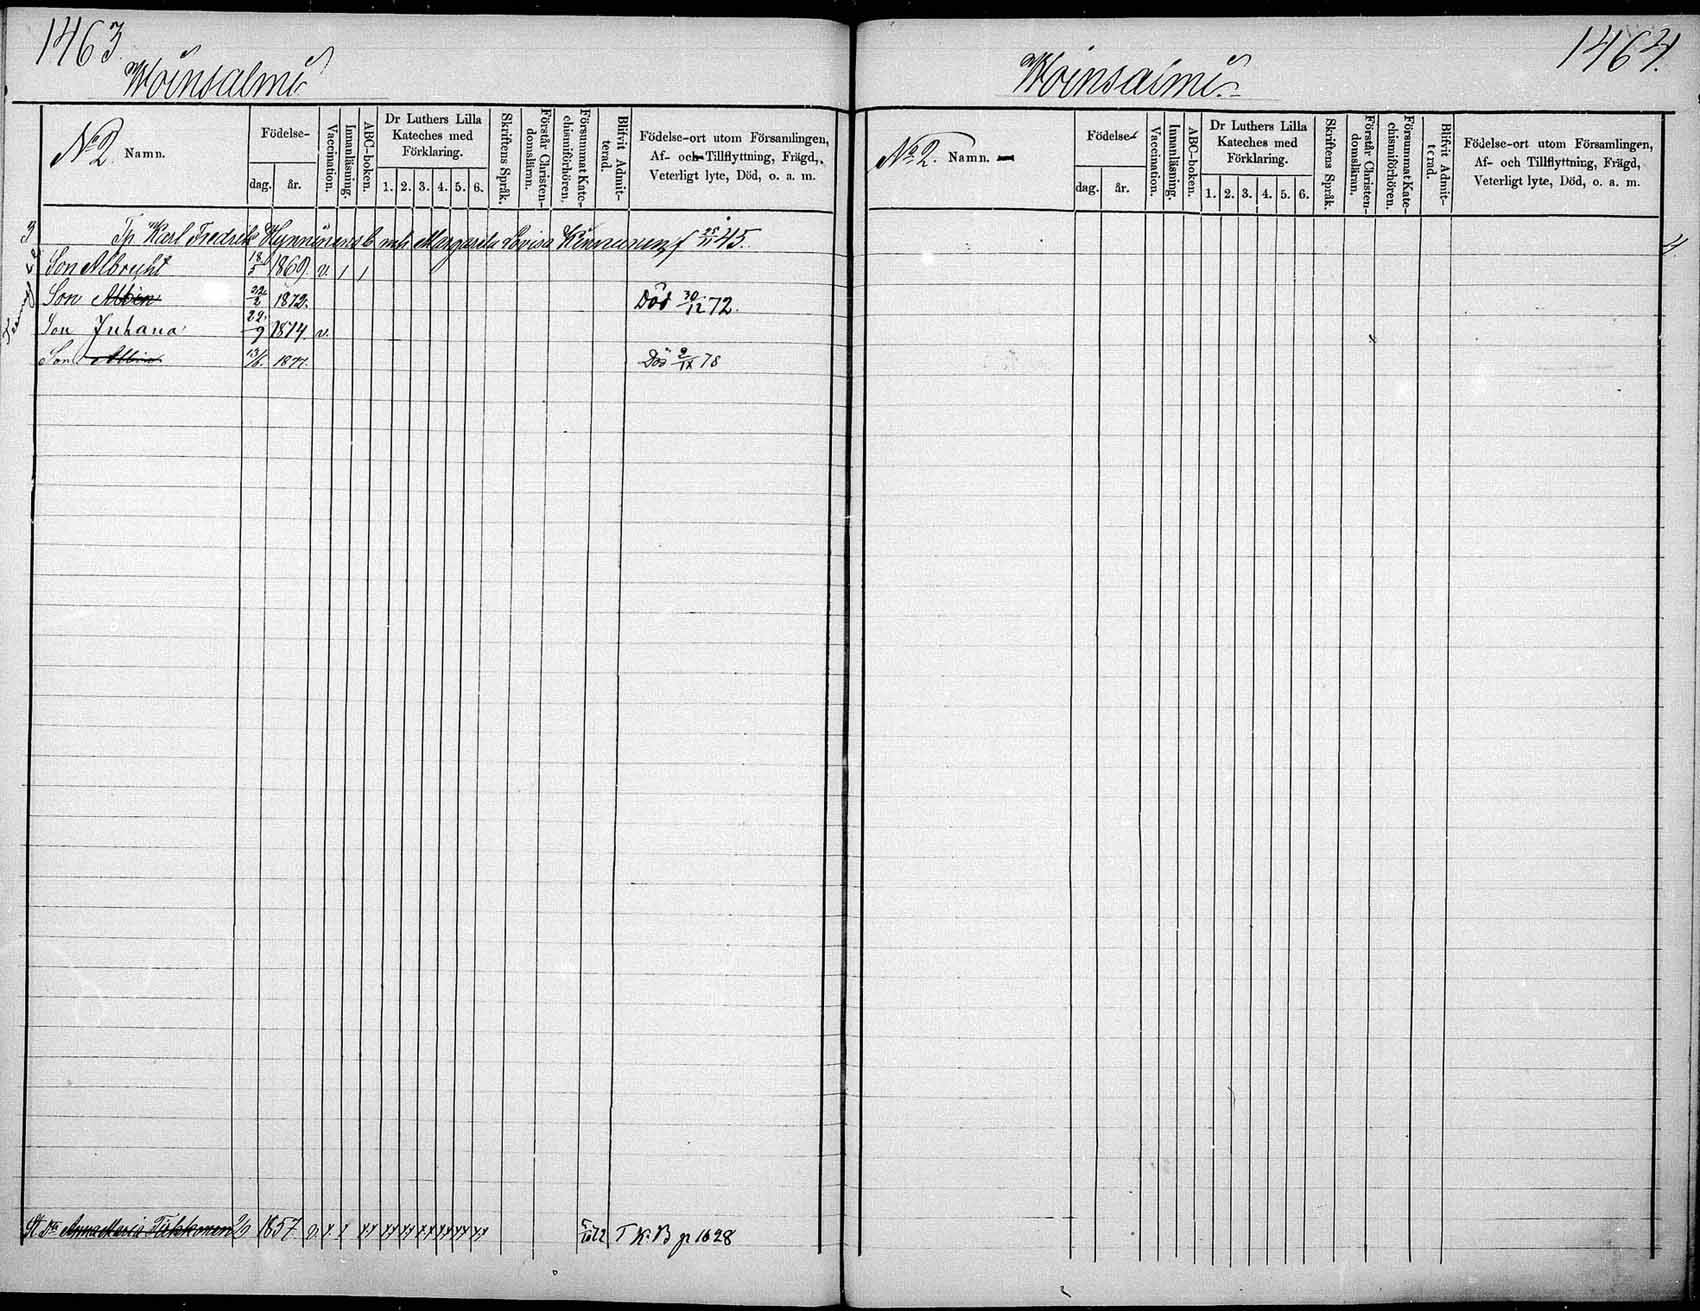 1463
Woinsalmi
No 2. Namn.
Födelse-
dag.
år.
Vaccination.
Innanläsning.
ABC-boken.
Dr Luthers Lilla
Kateches med
Förklaring.
1. 2. 3. 4. 5. 6.
Skriftens Språk.
Förstår Christen-
domsläran.
Försummat Kate-
chismiförhören.
Blifvit Admit-
terad.
Födelse-ort utom Församlingen,
Af- och Tillflyttning, Frägd,
Veterligt lyte, Död, o. a. m.
3 Tp Karl Fredrik Hynninens b. m. Margareta Lovisa Kinnunen f 45.
Son Albrecht 18/5 1869 v. 1 1
Son Albin 22/2 1872. Död 30/12 72.
Son Juhana 22/9 1874. v.
Son Albin 13/6. 1877. Död 9/12 78
Anna Maria 1857 T K. B p 1628
1464.
Woinsalmi.
No 2. Namn.
Födelse-
dag.
år.
Vaccination.
Innanläsning.
ABC-boken.
Dr Luthers Lilla
Kateches med
Förklaring.
1. 2. 3. 4. 5. 6.
Skriftens Språk.
Förstår Christen-
domsläran.
Försummat Kate-
chismiförhören.
Blifvit Admit-
terad.
Födelse-ort utom Församlingen,
Af- och Tillflyttning, Frägd,
Veterligt lyte, Död, o. a. m.
4.